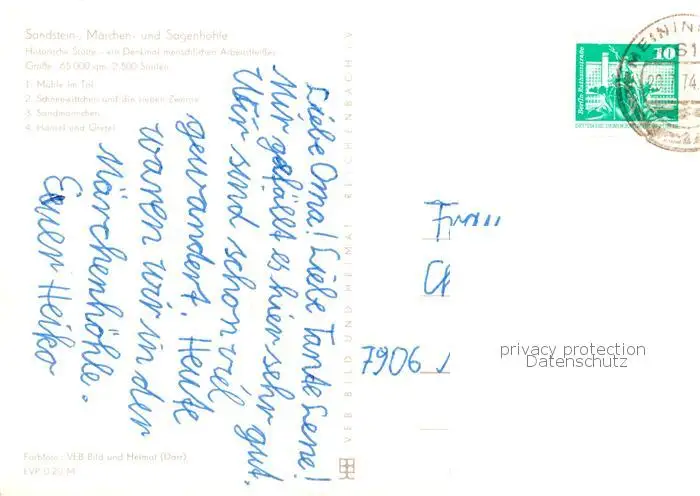 Sandstein-, Märchen- und Sagenhöhle
Historische Stätte - ein Denkmal menschlichen Arbeitsfleißes
Größe: 65 000 qm, 2 500 Säulen
1. Mühle im Tal
2. Schneewittchen und die sieben Zwerge
3. Sandmännchen
4. Hänsel und Gretel
Liebe Oma! Liebe Tante Lene!
Mir gefällt es hier sehr gut.
Wir sind schon viel
gewandert. Heute
waren wir in der
Märchenhöhle.
Euer Heiko
Farbfoto: VEB Bild und Heimat (Darr)
EVP 0,20 M
VEB BILD UND HEIMAT REICHENBACH i. V.
10
Berlin, Rathausstraße
MEININ
74
Frau
7906
privacy protection
Datenschutz